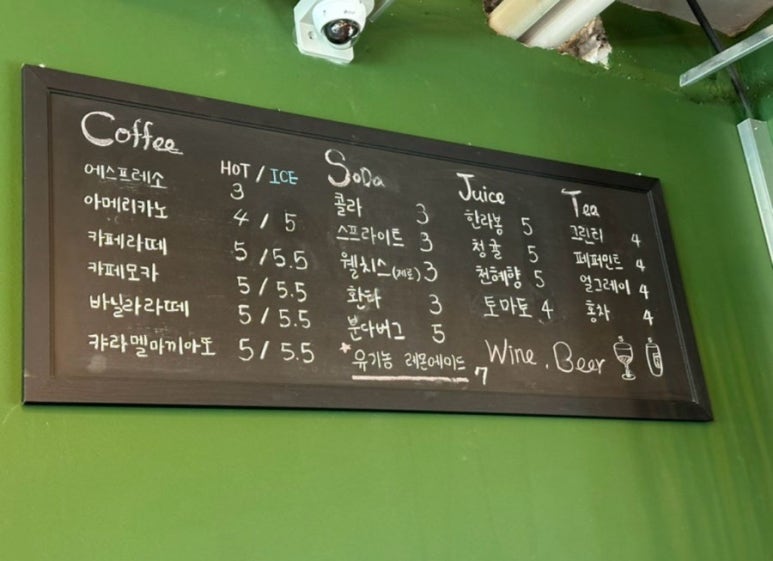 Coffee
HOT / ICE
에스프레소 3
아메리카노 4 / 5
카페라떼 5 / 5.5
카페모카 5 / 5.5
바닐라라떼 5 / 5.5
캬라멜마끼아또 5 / 5.5
SoDa
콜라 3
스프라이트 3
웰치스(제로) 3
환타 3
분다버그 5
*유기농 레몬에이드 7
Juice
한라봉 5
청귤 5
천혜향 5
토마토 4
Tea
그린티 4
페퍼민트 4
얼그레이 4
홍차 4
Wine . Beer